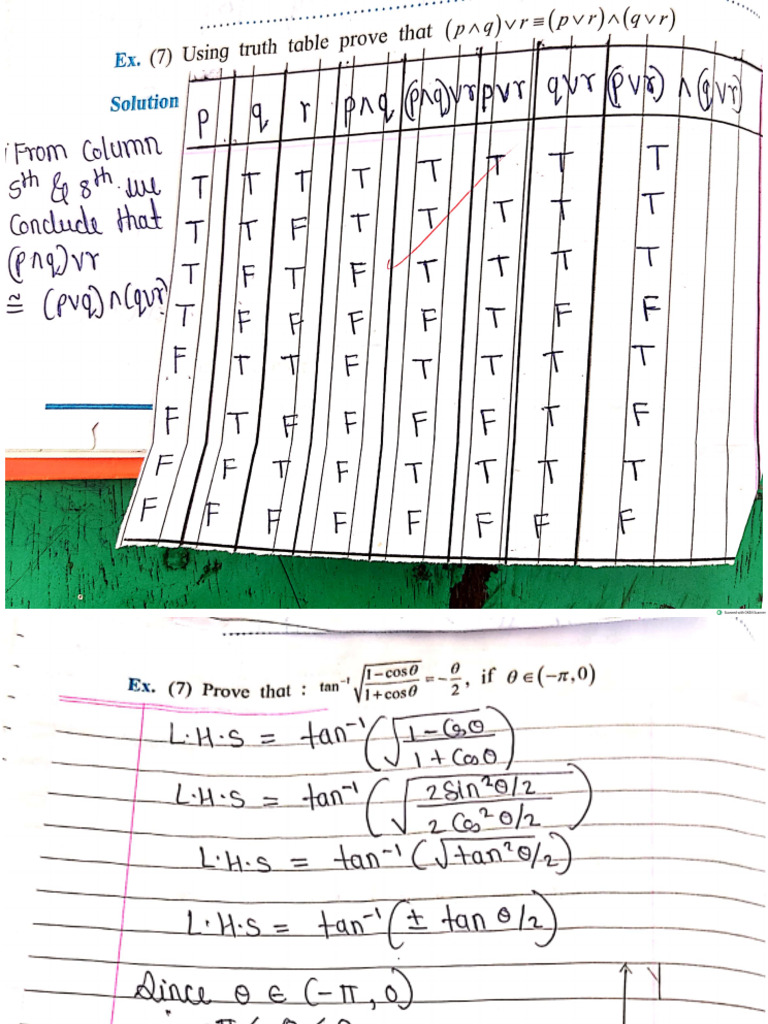 Ex. (7) Using truth table prove that (p∧q)∨r≡(p∨r)∧(q∨r)
Solution
p q r p∧q (p∧q)∨r p∨r q∨r (p∨r) ∧ (q∨r)
T T T T T T T T
T T F T T T T T
T F T F T T T T
T F F F F T F F
F T T F T T T T
F T F F F F T F
F F T F T T T T
F F F F F F F F
From Column
5th & 8th we
Conclude that
(p∧q)∨r
≅ (p∨q)∧(q∨r)
Ex. (7) Prove that : tan⁻¹ √((1−cosθ)/(1+cosθ)) = −θ/2, if θ∈(−π,0)
L.H.S = tan⁻¹(√((1−Cosθ)/(1+Cosθ)))
L.H.S = tan⁻¹(√((2Sin²θ/2)/(2Cos²θ/2)))
L.H.S = tan⁻¹(√tan²θ/2)
L.H.S = tan⁻¹(± tan θ/2)
Since θ ∈ (−π, 0)
Y